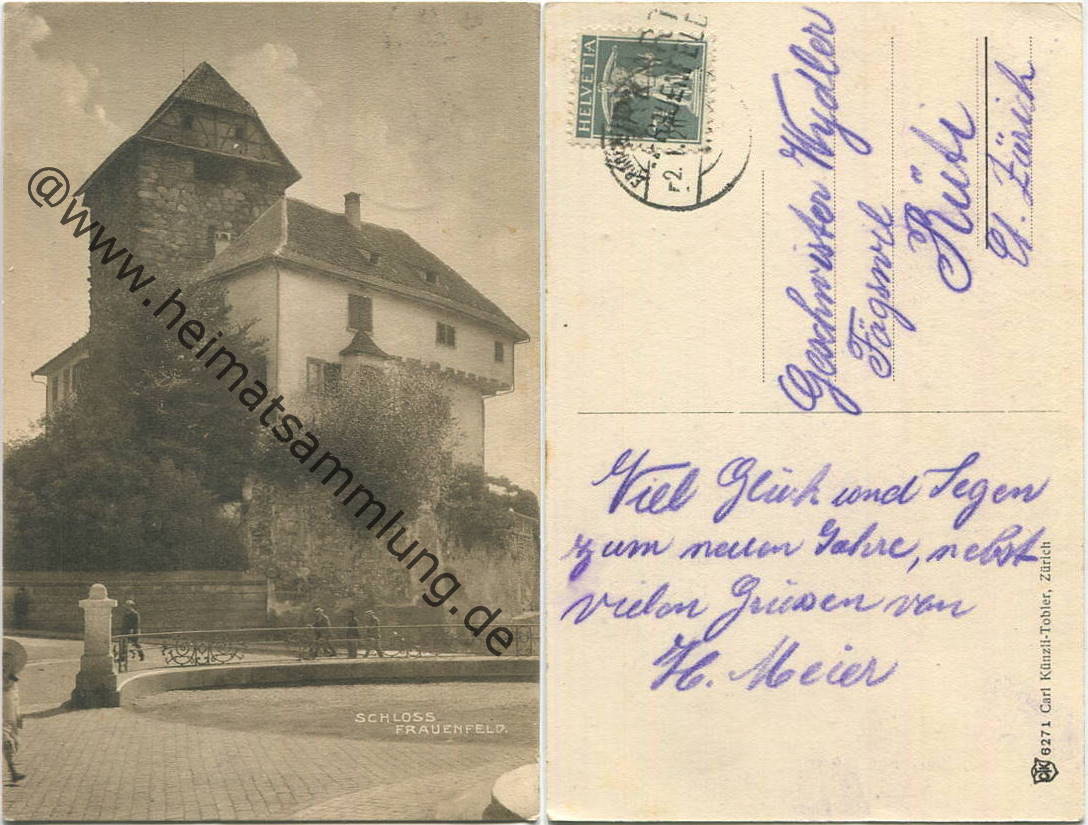 @www.heimatsammlung.de
SCHLOSS
FRAUENFELD.
HELVETIA
FRAUENFELD
Geschwister Wydler
Fägswil
Rüti
Ct. Zürich
Viel Glück und Segen
zum neuen Jahre, nebst
vielen Grüssen von
H. Meier
6271 Carl Künzli-Tobler, Zürich